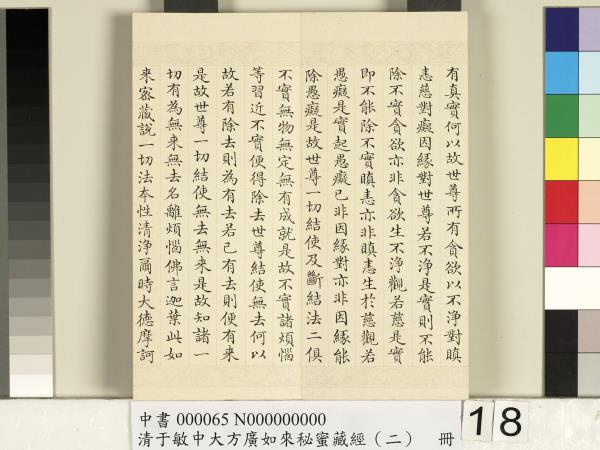 有真實何以故世尊所有貪欲以不淨對瞋
恚慈對癡因緣對世尊若不淨是實則不能
除不實貪欲亦非貪欲生不淨觀若慈是實
即不能除不實瞋恚亦非瞋恚生於慈觀若
愚癡是實起愚癡已非因緣對亦非因緣能
除愚癡是故世尊一切結使及斷結法二俱
不實無物無定無有成就是故不實諸煩惱
等習近不實便得除去世尊結使無去何以
故若有除去則為有去若已有去則便有來
是故世尊一切結使無去無來是故知諸一
切有為無來無去名離煩惱佛言迦葉此如
來密藏說一切法本性清淨爾時大德摩訶
中書 000065 N000000000
清于敏中大方廣如來秘蜜藏經（二） 冊
18